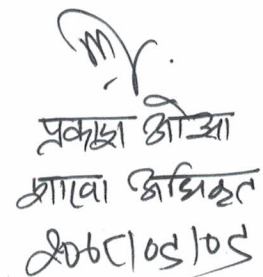 प्रकाश ओझा
शाखा अधिकृत
२०७८।०८।०८